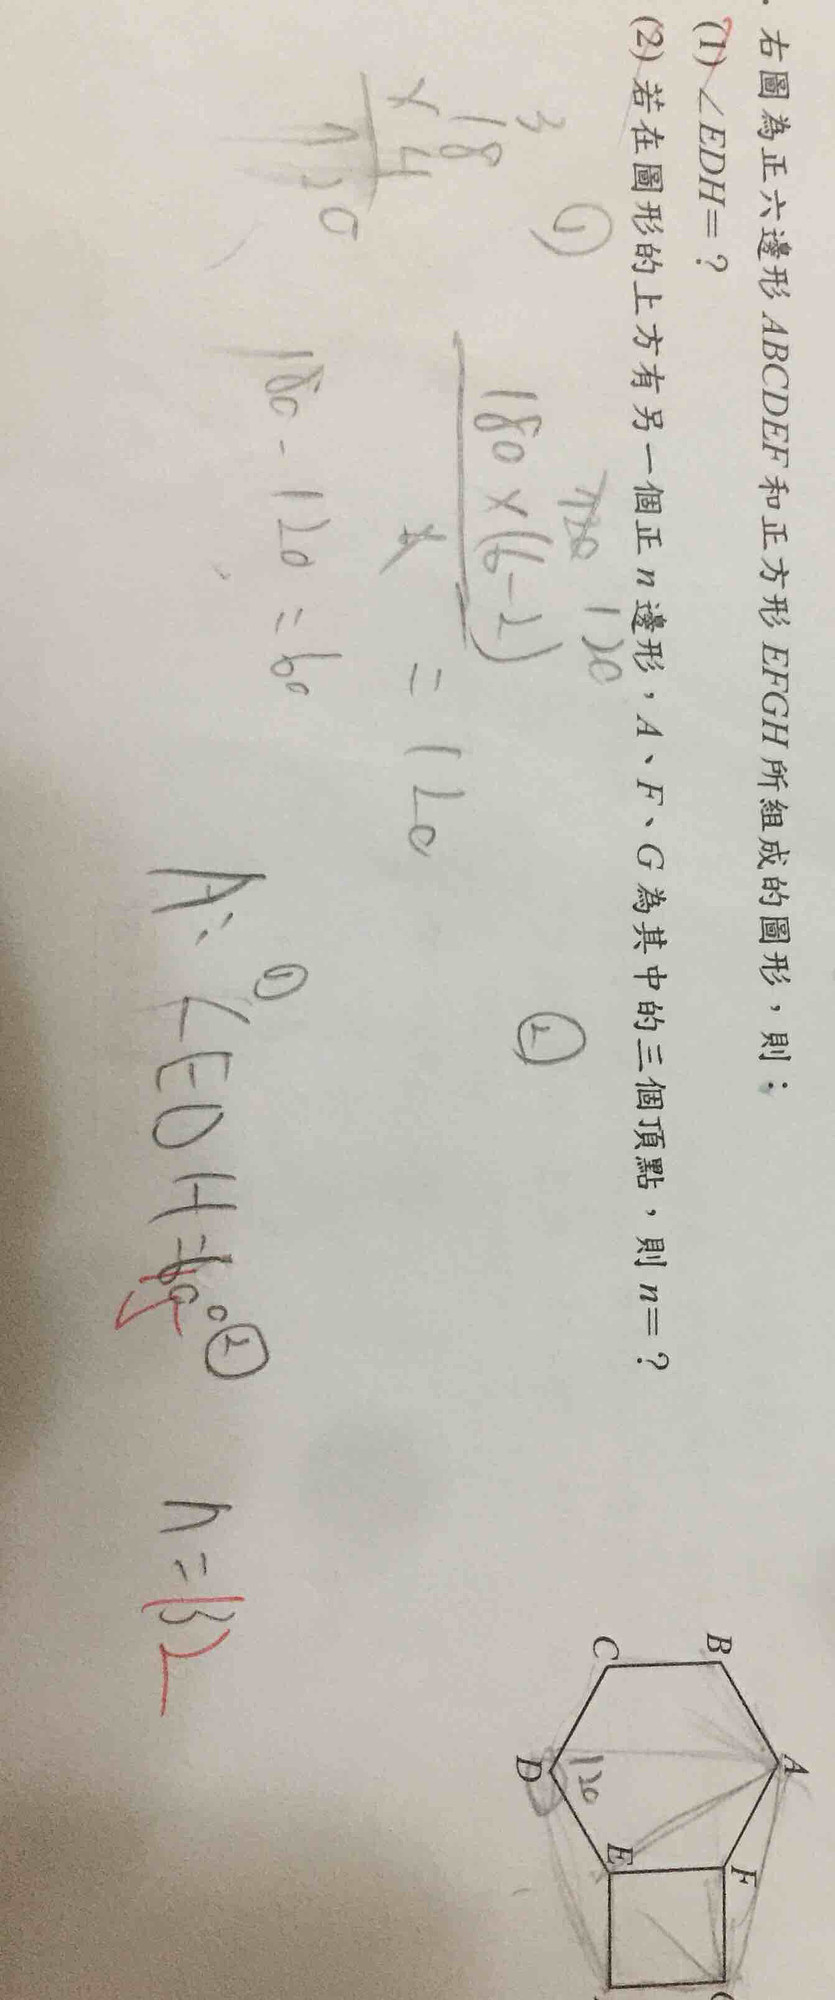 右圖為正六邊形ABCDEF和正方形EFGH所組成的圖形，則：
(1) ∠EDH=？
(2) 若在圖形的上方有另一個正n邊形，A、F、G為其中的三個頂點，則n=？
B
A
F
C
D
E
120
①
3
18
×4
720
120
180×(6-2)
= 120
180-120=60
②
A: ① ∠EDH=
② n=